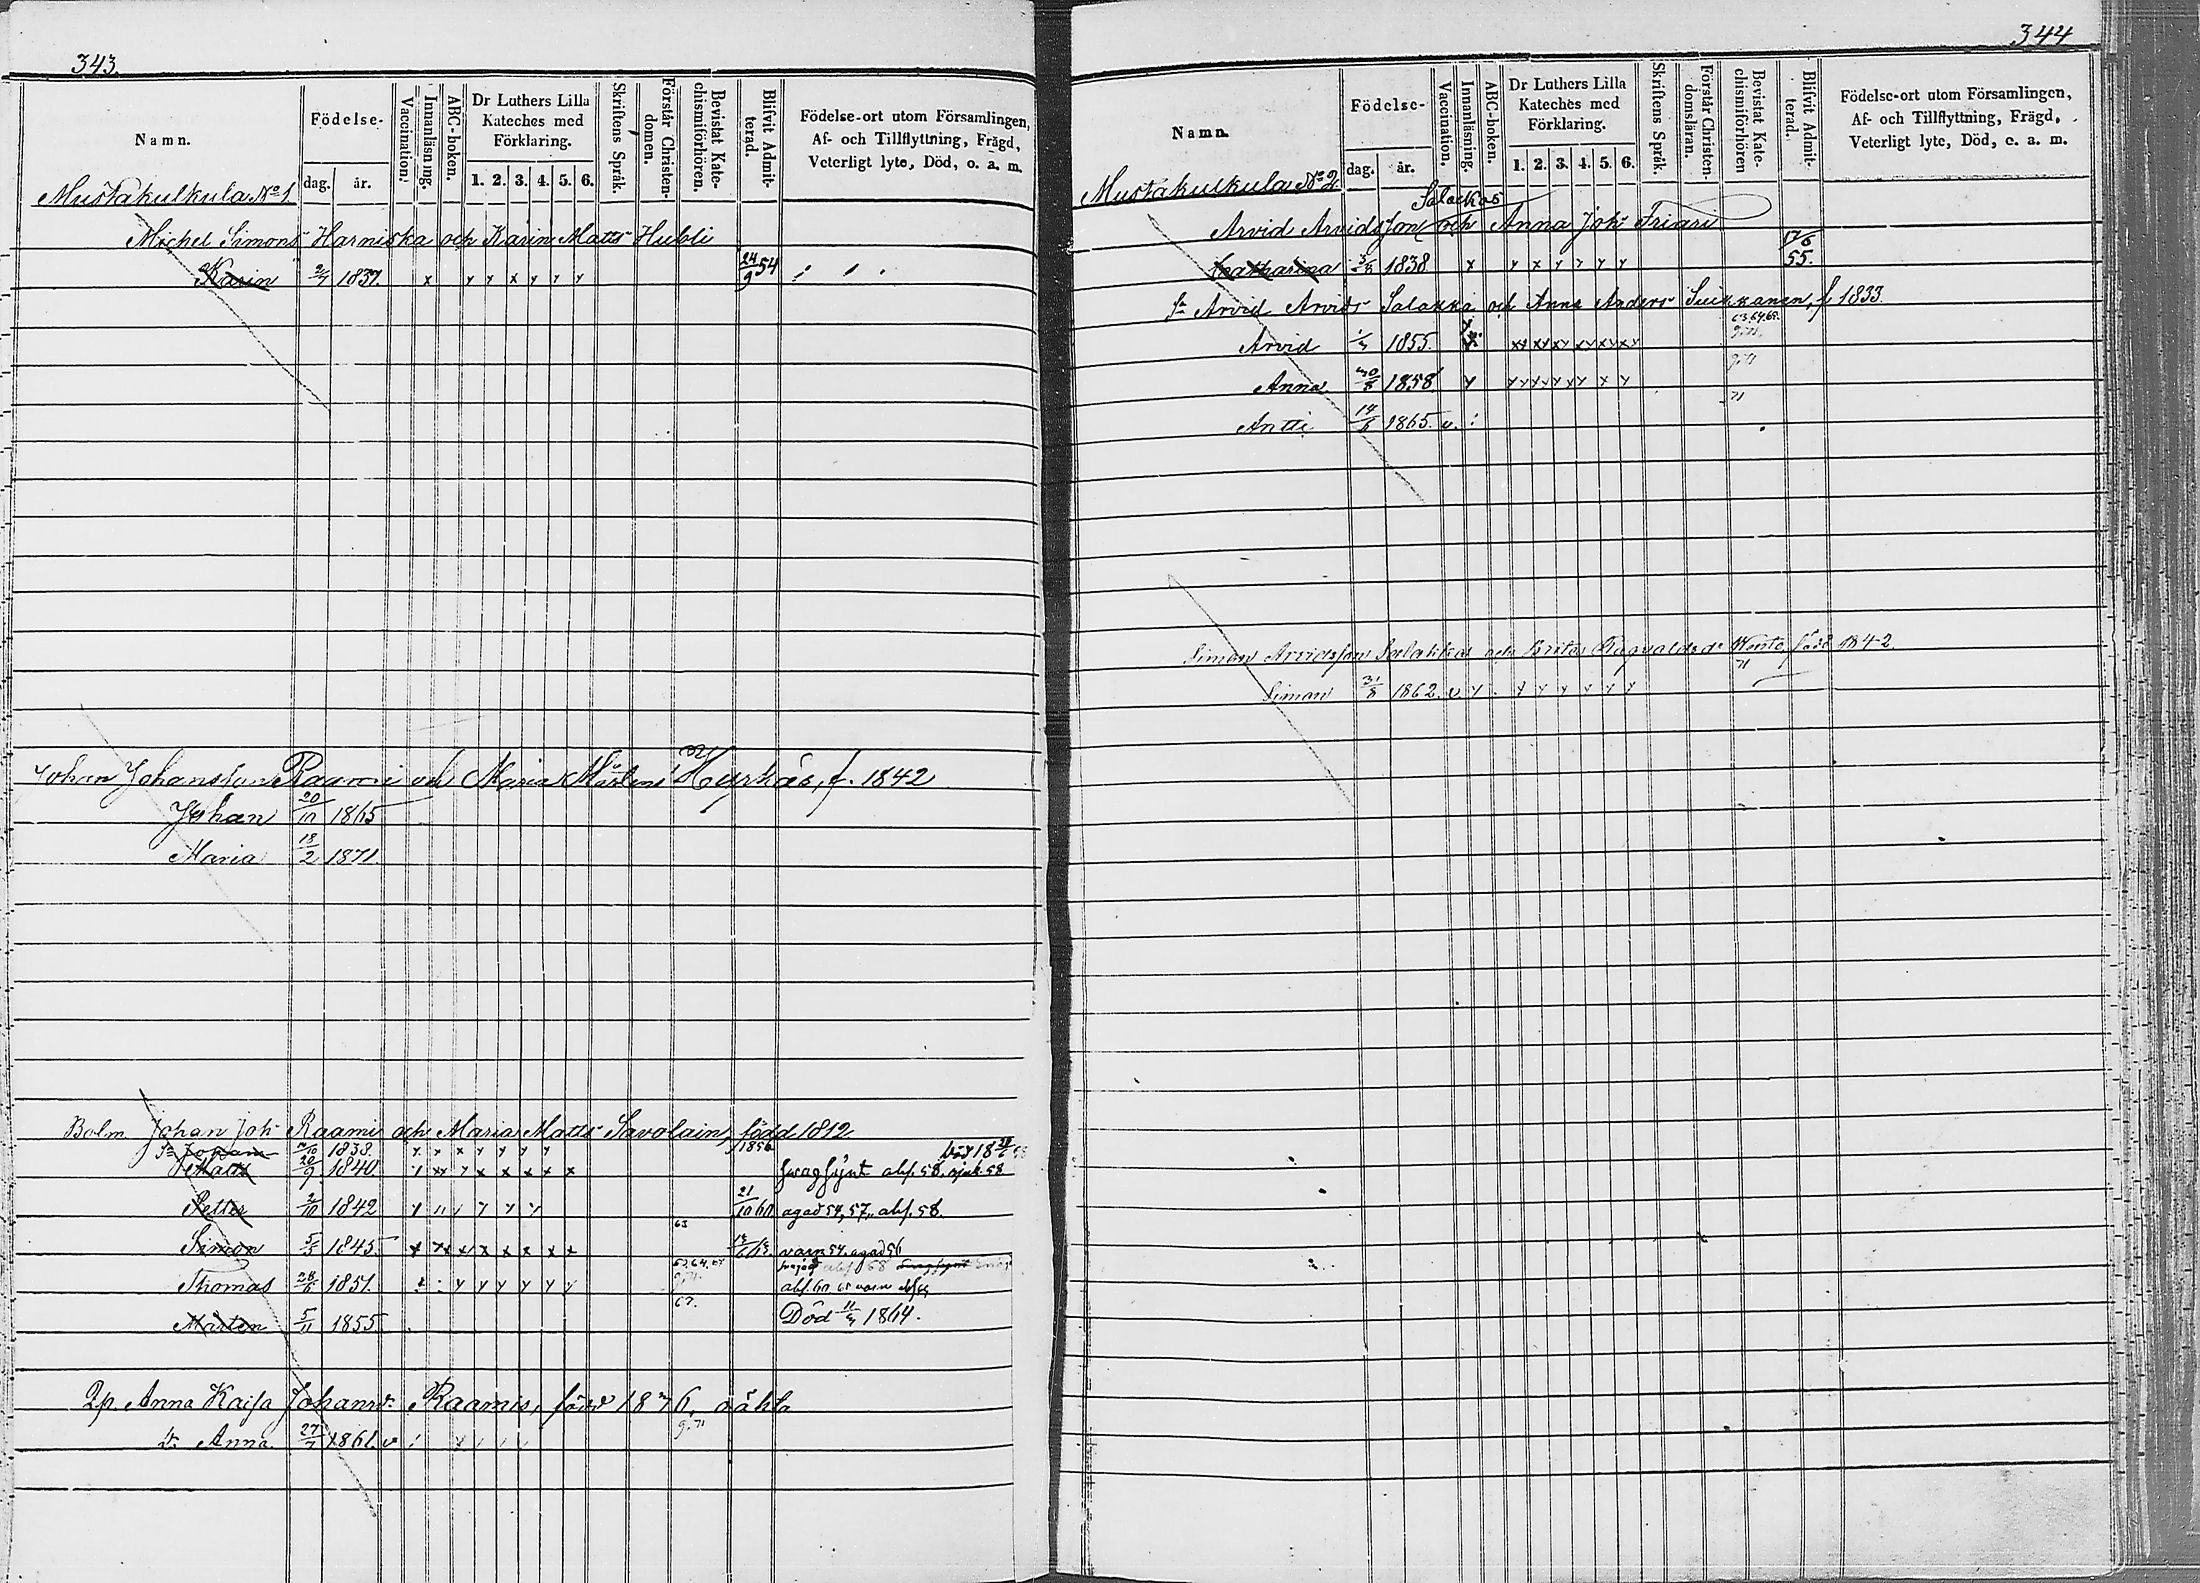 343.
Namn.
Födelse-
dag.
år.
Vaccination.
Innanläsning.
ABC-boken.
Dr Luthers Lilla
Kateches med
Förklaring.
1. 2. 3. 4. 5. 6.
Skriftens Språk.
Förstår Christen-
domen.
Bevistat Kate-
chismiförhören.
Blifvit Admit-
terad.
Födelse-ort utom Församlingen,
Af- och Tillflyttning, Frägd,
Veterligt lyte, Död, o. a. m.
Mustakulkula No 1.
Michel Simons Harniska och Karin Matts Hubli
Karin 1837. x y y x y y y 24/9 54
Johan Johansson Raami och Maria Mårtens Hyrkäs, f. 1842
Johan 20/10 1865
Maria 18/2 1871
Bolm Johan Joh Raami och Maria Matts Savolain, född 1812
Sn Johan 1838. 1856
Matts 20/9 1840. svagsynt abs. 58. sjuk. 58
Petter 2/10 1842 21/10 60 agad 54, 57, abs. 58.
63
Simon 5/5 1845 varn 54. agad 56
Thomas 28/6 1851. abs. 60
67.
Mårten 5/11 1855. Död 1864.
Anna Kaisa Johansdr Raamis, född 1836, oäkta
g. 71
dr Anna 27/7 1861. v
344
Namn.
Födelse-
dag.
år.
Vaccination.
Innanläsning.
ABC-boken.
Dr Luthers Lilla
Kateches med
Förklaring.
1. 2. 3. 4. 5. 6.
Skriftens Språk.
Förstår Christen-
domsläran.
Bevistat Kate-
chismiförhören
Blifvit Admit-
terad.
Födelse-ort utom Församlingen,
Af- och Tillflyttning, Frägd,
Veterligt lyte, Död, o. a. m.
Mustakulkula No 2.
Salackas
Arvid Arvidsson och Anna Joh Friari
Catharina 1838 x y x y y y y 17/6 55.
Sn Arvid Arvids Salakka och Anna Anders Suikkanen, f 1833.
63, 64, 68.
Arvid 1855.
g. 71
Anna 30/8 1858
71
Antti 14/6 1865. v.
Simon Arvidsson Salakkas och Brita Ragvaldsdr Wento, född 1842.
71
Simon 31/8 1862. v y y y y y y y